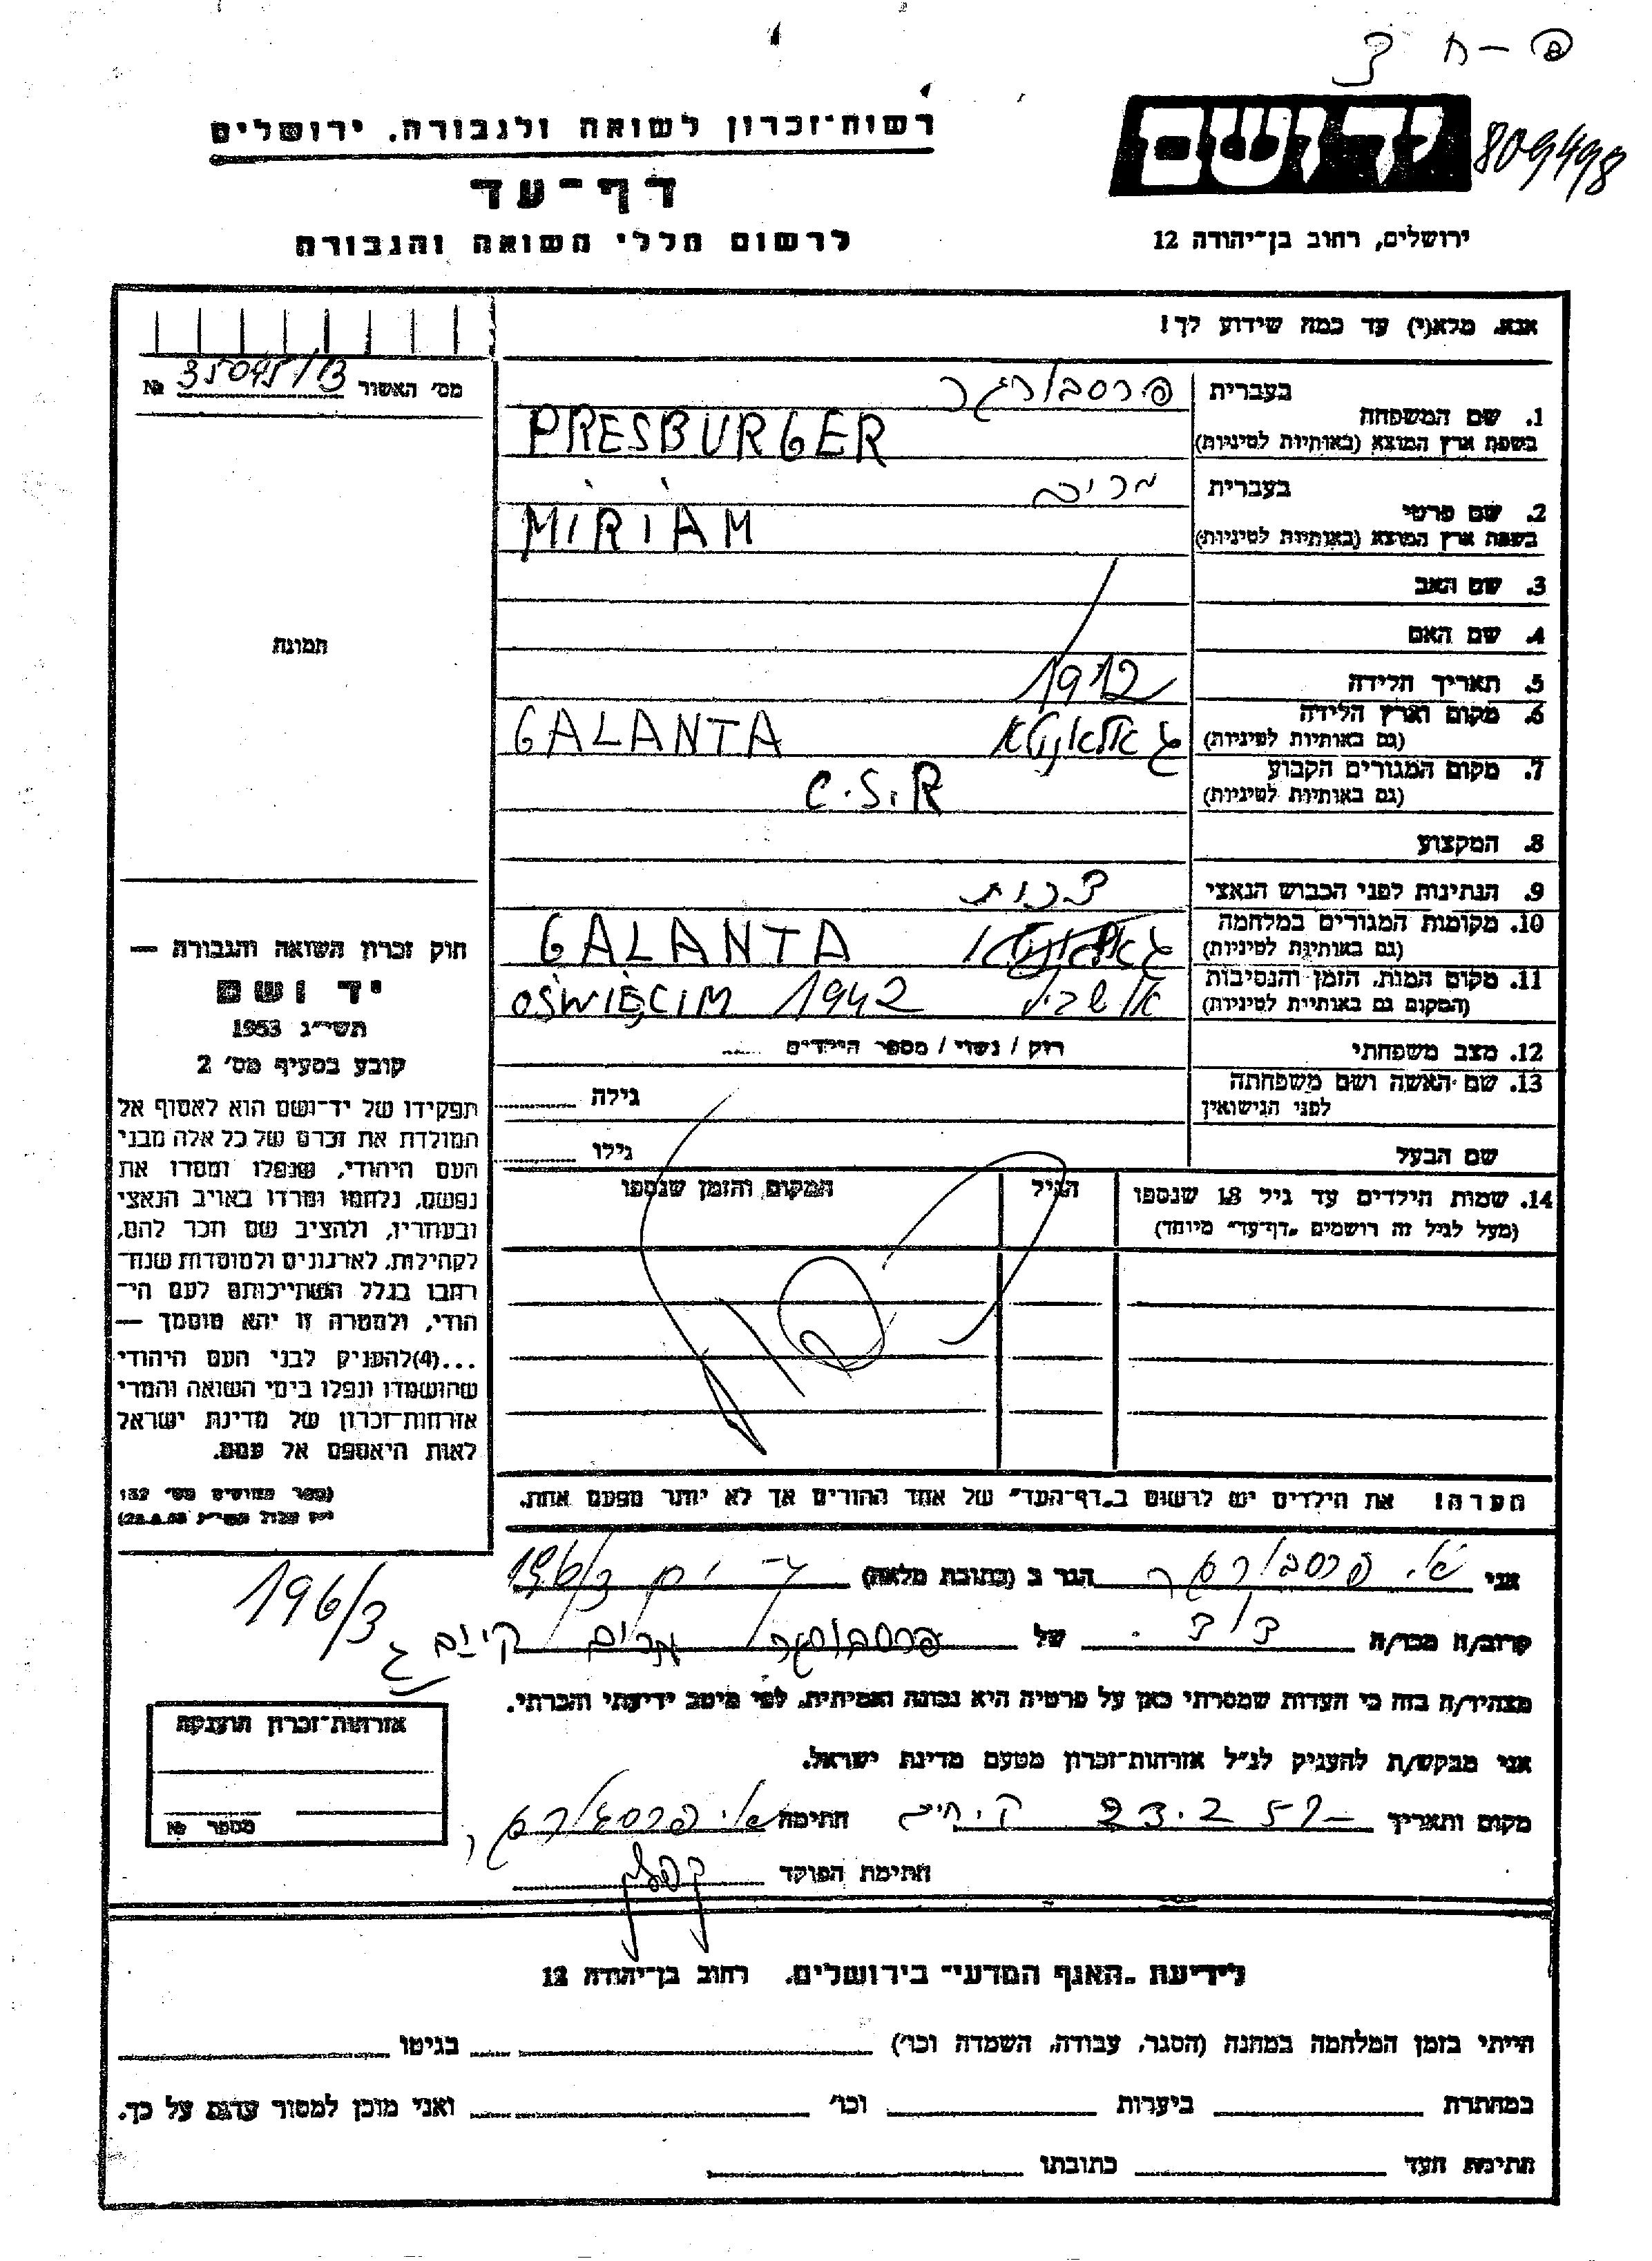 פ-ח
רשות-זכרון לשואה ולגבורה. ירושלים
ידושם
809498
דף-עד
לרשום חללי השואה והגבורה
ירושלים, רחוב בן-יהודה 12
אנא, מלא(י) עד כמה שידוע לך!
מס׳ האשור 35045/13 №
1. שם המשפחה
בעברית פרסבורגר
בשפת ארץ המוצא (באותיות לטיניות) PRESBURGER
2. שם פרטי
בעברית מרים
בשפת ארץ המוצא (באותיות לטיניות) MIRIAM
3. שם האב
4. שם האם
5. תאריך הלידה 1912
6. מקום וארץ הלידה גאלאנטא GALANTA
(גם באותיות לטיניות)
7. מקום המגורים הקבוע C.S.R
(גם באותיות לטיניות)
8. המקצוע
9. הנתינות לפני הכבוש הנאצי צכית
10. מקומות המגורים במלחמה גאלאנטא GALANTA
(גם באותיות לטיניות)
11. מקום המות, הזמן והנסיבות 1942 OŚWIĘCIM
(המקום גם באותיות לטיניות)
12. מצב משפחתי רוק / נשוי / מספר הילדים
13. שם האשה ושם משפחתה
לפני הנישואין גילה
שם הבעל גילו
14. שמות הילדים עד גיל 18 שנספו
(מעל לגיל זה רושמים „דף-עד״ מיוחד)
הגיל
המקום והזמן שנספו
תמונה
חוק זכרון השואה והגבורה —
יד ושם
תשי״ג 1953
קובע בסעיף מס׳ 2
תפקידו של יד-ושם הוא לאסוף אל
המולדת את זכרם של כל אלה מבני
העם היהודי, שנפלו ומסרו את
נפשם, נלחמו ומרדו באויב הנאצי
ובעוזריו, ולהציב שם וזכר להם,
לקהילות, לארגונים ולמוסדות שנח-
רבו בגלל השתייכותם לעם הי-
הודי, ולמטרה זו יהא מוסמך —
...(4)להעניק לבני העם היהודי
שהושמדו ונפלו בימי השואה והמרי
אזרחות-זכרון של מדינת ישראל
לאות היאספם אל עמם.
(ספר החוקים מס׳ 132
הערה! את הילדים יש לרשום ב„דף-העד״ של אחד ההורים אך לא יותר מפעם אחת.
אני פרסבורגר הגר ב (כתובת מלאה) 196/3
196/3
קרוב/ה מכר/ה של פרסבורגר מרים
מצהיר/ה בזה כי העדות שמסרתי כאן על פרטיה היא נכונה ואמיתית, לפי מיטב ידיעתי והכרתי.
אני מבקש/ת להעניק לנ״ל אזרחות-זכרון מטעם מדינת ישראל.
מקום ותאריך חתימה פרסבורגר
חתימת הפוקד
אזרחות-זכרון הוענקה
מספר №
לידיעת „האגף המדעי״ בירושלים. רחוב בן-יהודה 12
הייתי בזמן המלחמה במחנה (הסגר, עבודה, השמדה וכו׳) בגיטו
במחתרת ביערות וכו׳ ואני מוכן למסור עדות על כך.
חתימת העד כתובתו